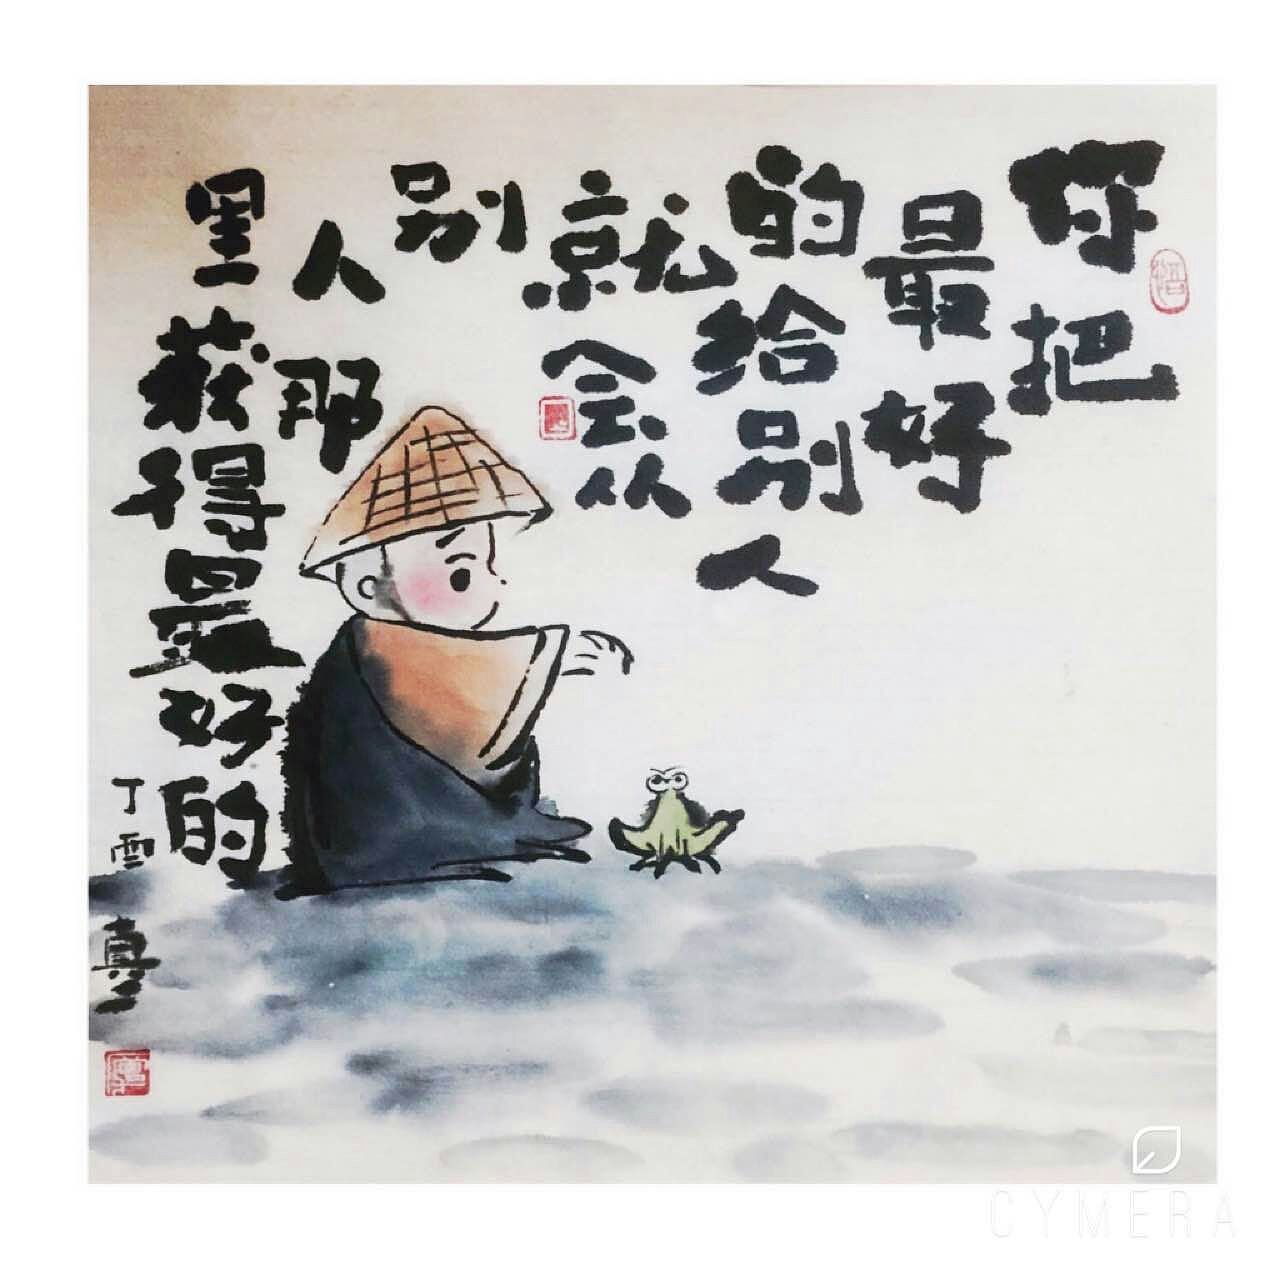 你把
最好
的给别人
就会从
别
人那
里获得最好的
CYMERA